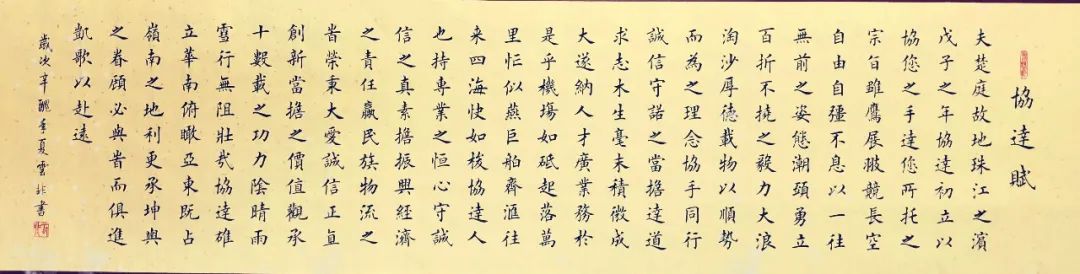 協達賦
夫楚庭故地珠江之濱
戊子之年協達初立以
協您之手達您所托之
宗旨雖鷹展翅競長空
自由自彊不息以一往
無前之姿態潮頭勇立
百折不撓之毅力大浪
淘沙厚德載物以順勢
而為之理念協手同行
誠信守諾之當擔達道
求志木生毫末積微成
大遂納人才廣業務於
是乎機場如砥起落萬
里似燕巨舶齊滙往
来四海快如梭協達人
也持專業之恒心守誠
信之真素擔振興經濟
之責任贏民族物流之
旹榮秉大愛誠信正直
創新當擔之價值觀承
十數載之功力陰晴雨
雪行無阻壯哉協達雄
立華南俯瞰亞東既占
嶺南之地利更承坤輿
之眷顧必與旹而俱進
凱歌以赴遠
歲次辛醜季夏雲非書